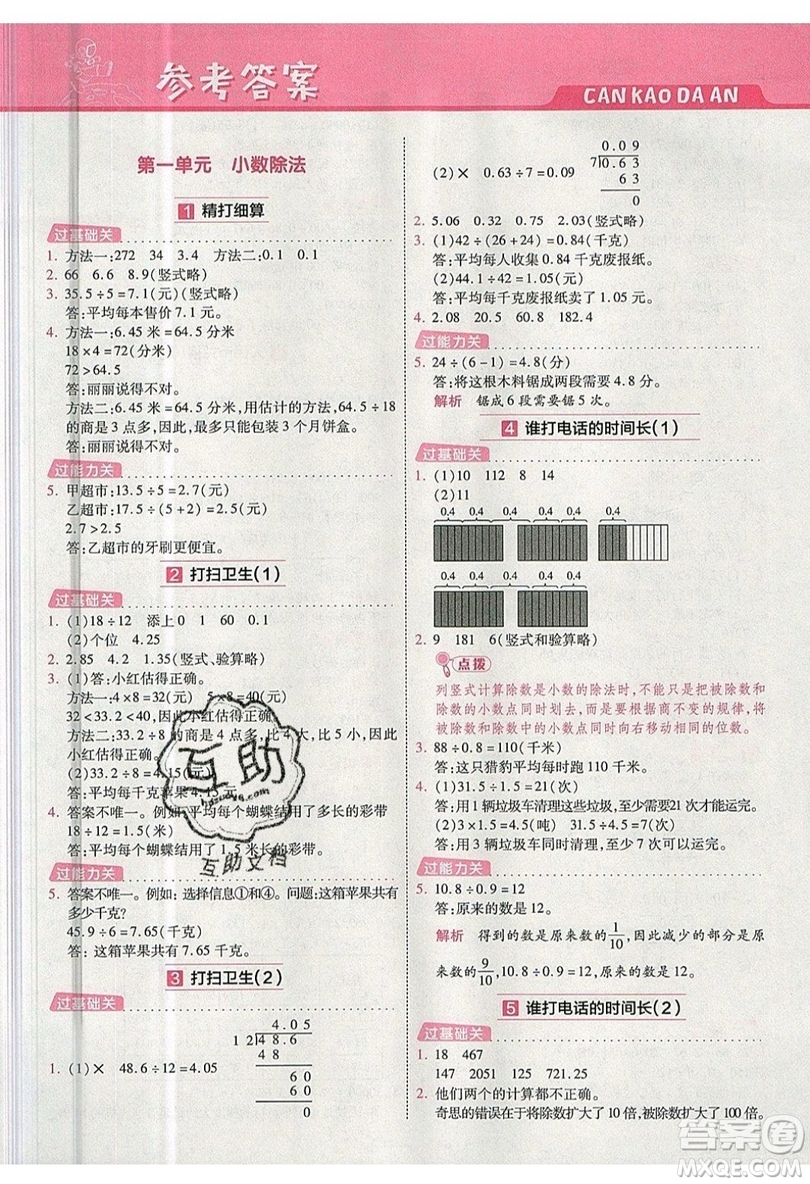 参考答案
CAN KAO DA AN
第一单元 小数除法
1 精打细算
过基础关
1. 方法一:272 34 3.4 方法二:0.1 0.1
2. 66 6.6 8.9(竖式略)
3. 35.5÷5=7.1(元)(竖式略)
答:平均每本售价7.1元。
4. 方法一:6.45米=64.5分米
18×4=72(分米)
72>64.5
答:丽丽说得不对。
方法二:6.45米=64.5分米,用估计的方法,64.5÷18
的商是3点多,因此,最多只能包装3个月饼盒。
答:丽丽说得不对。
过能力关
5. 甲超市:13.5÷5=2.7(元)
乙超市:17.5÷(5+2)=2.5(元)
2.7>2.5
答:乙超市的牙刷更便宜。
2 打扫卫生(1)
过基础关
1. (1)18÷12 添上0 1 60 0.1
(2)个位 4.25
2. 2.85 4.2 1.35(竖式、验算略)
3. (1)答:小红估得正确。
方法一:4×8=32(元) 5×8=40(元)
32<33.2<40,因此小红估得正确。
方法二:33.2÷8的商是4点多,比4大,比5小,因此
小红估得正确。
(2)33.2÷8=4.15(元)
答:平均每千克苹果4.15元。
4. 答案不唯一。例如:平均每个蝴蝶结用了多长的彩带
18÷12=1.5(米)
答:平均每个蝴蝶结用了1.5米的彩带。
过能力关
5. 答案不唯一。例如:选择信息①和④。问题:这箱苹果共有
多少千克?
45.9÷6=7.65(千克)
答:这箱苹果共有7.65千克。
3 打扫卫生(2)
过基础关
1. (1)× 48.6÷12=4.05
4.05
12 48.6
48
60
60
0
(2)× 0.63÷7=0.09
0.09
7 0.63
63
0
2. 5.06 0.32 0.75 2.03(竖式略)
3. (1)42÷(26+24)=0.84(千克)
答:平均每人收集0.84千克废报纸。
(2)44.1÷42=1.05(元)
答:平均每千克废报纸卖了1.05元。
4. 2.08 20.5 60.8 182.4
过能力关
5. 24÷(6-1)=4.8(分)
答:将这根木料锯成两段需要4.8分。
解析 锯成6段需要锯5次。
4 谁打电话的时间长(1)
过基础关
1. (1)10 112 8 14
(2)11
0.4 0.4 0.4 0.4 0.4 0.4
0.4 0.4 0.4 0.4 0.4
2. 9 181 6(竖式和验算略)
点拨
列竖式计算除数是小数的除法时,不能只将被除数和
除数的小数点同时划去,而是要根据商不变的规律,将
被除数和除数中的小数点同时向右移动相同的位数。
3. 88÷0.8=110(千米)
答:这只猎豹平均每时跑110千米。
4. (1)31.5÷1.5=21(次)
答:用1辆垃圾车清理这些垃圾,至少需要21次才能运完。
(2)3×1.5=4.5(吨) 31.5÷4.5=7(次)
答:用3辆垃圾车同时清理,至少需要7次才能运完。
过能力关
5. 10.8÷0.9=12
答:原来的数是12。
解析 得到的数是原来数的1/10,因此减少的部分是原
来数的9/10,10.8÷0.9=12。
5 谁打电话的时间长(2)
过基础关
1. 18 467
147 2051 125 721.25
2. 他们两个的计算都不正确。
奇思的错误在于将除数扩大了10倍,被除数扩大了100倍。
互助
互助文档
答案圈
MXQE.COM